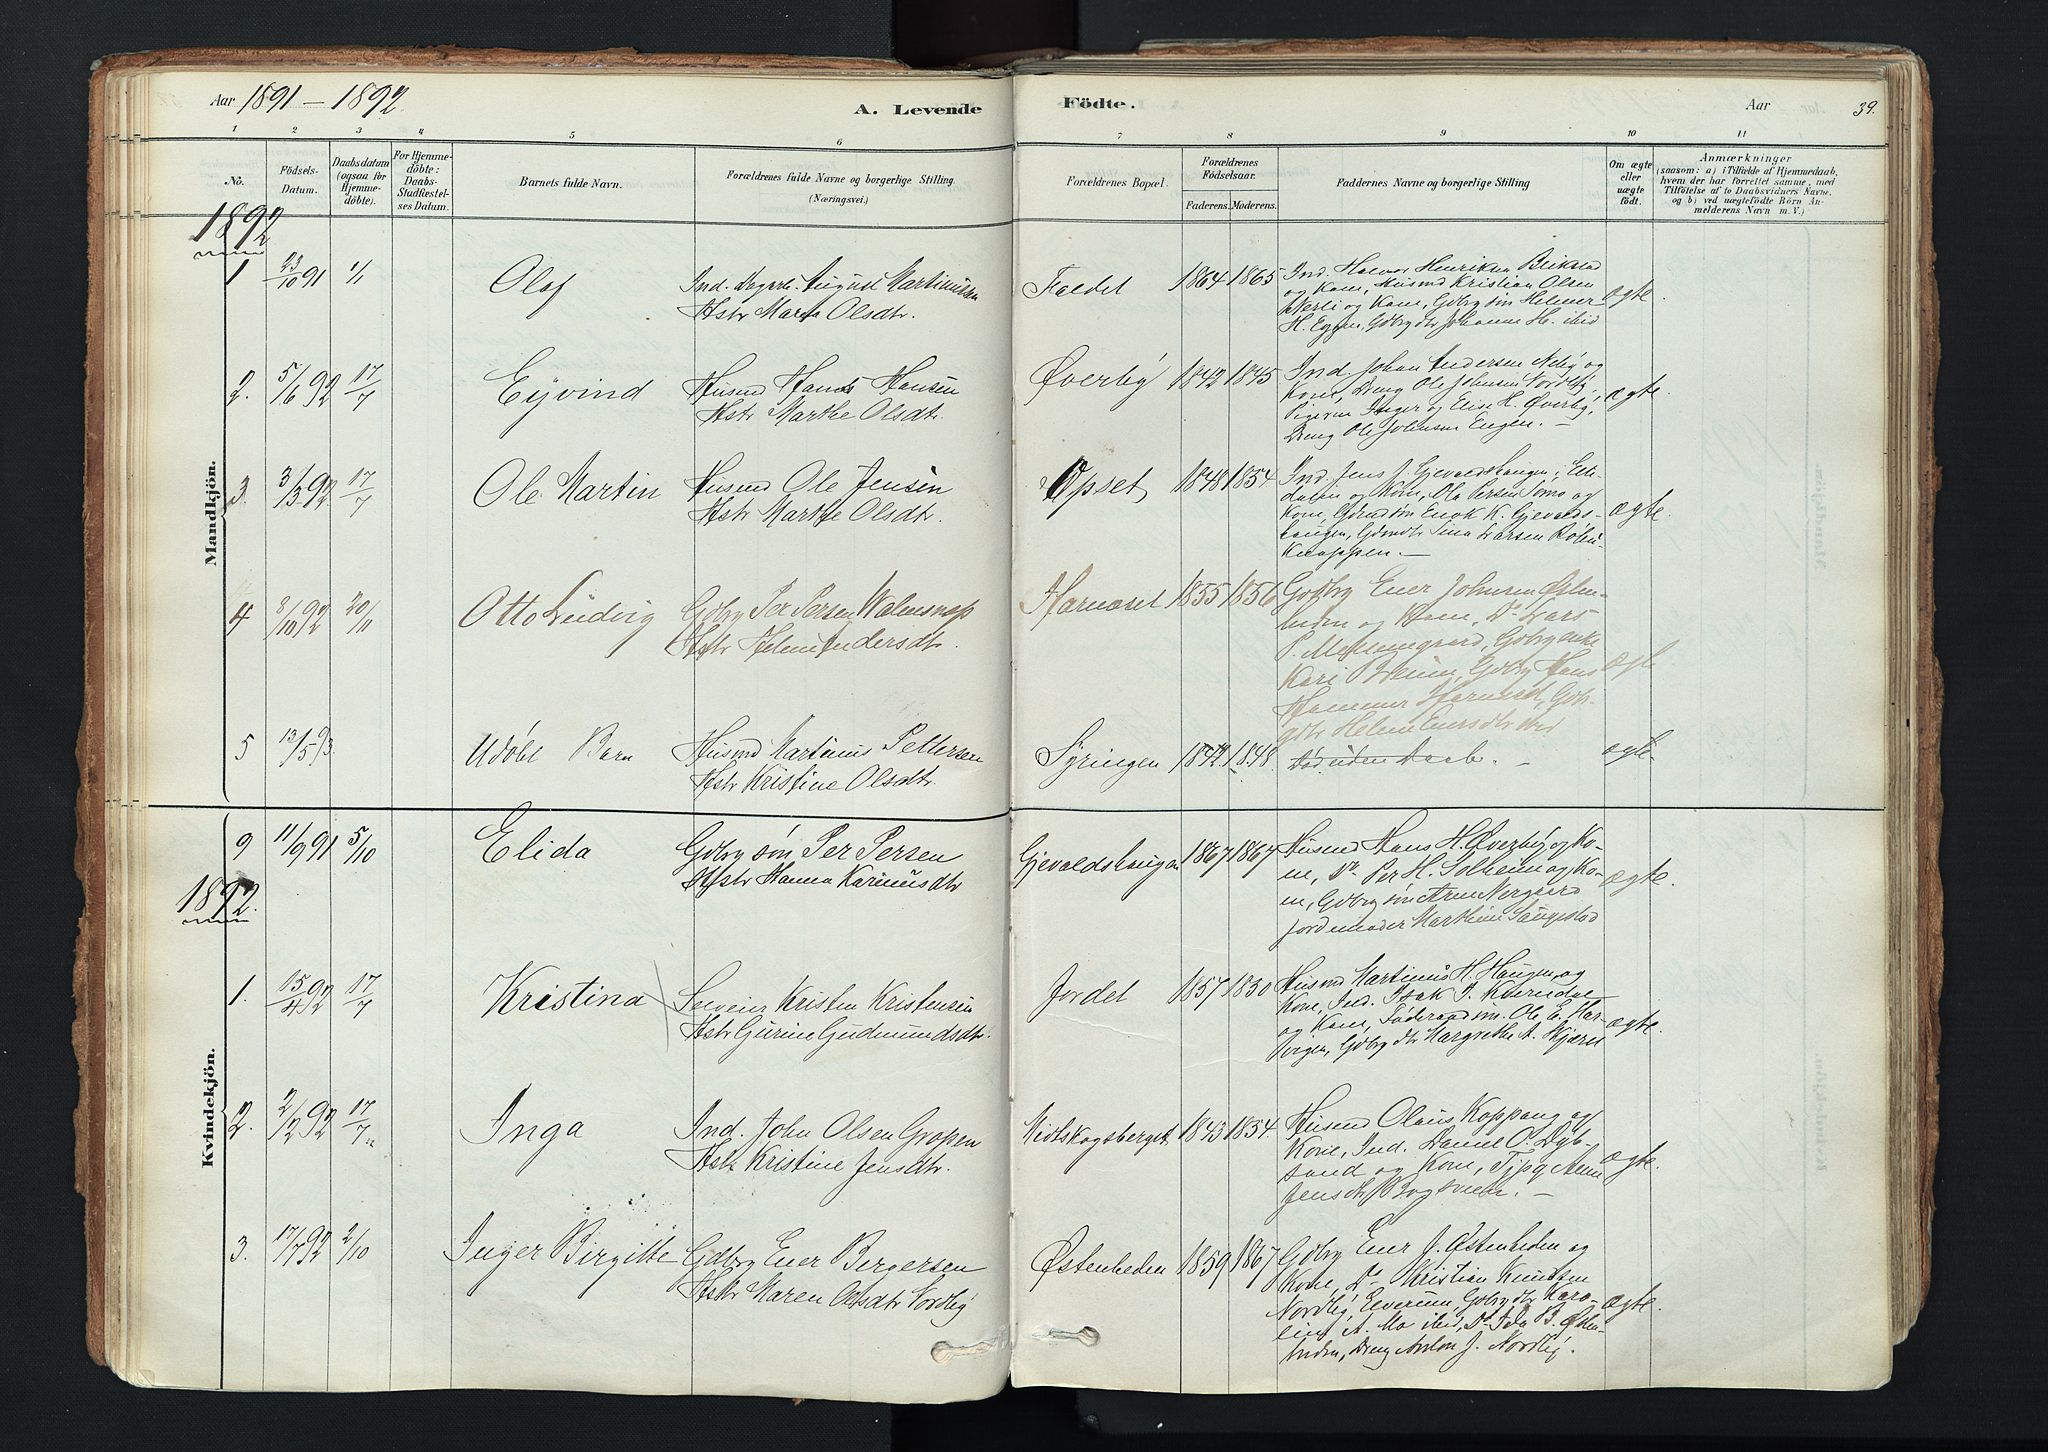 Aar 1891 - 1892. A. Levende Födte. Aar 39.
1 2 3 4 5 6 7 8 9 10 11
No.
Födsels-Datum.
Daabsdatum (ogsaa for Hjemmedöbte).
For Hjemmedöbte: Daabs-Stadfæstelses Datum.
Barnets fulde Navn.
Forældrenes fulde Navne og borgerlige Stilling. (Næringsvei.)
Forældrenes Bopæl.
Forældrenes Födselsaar.
Faderens. Moderens.
Faddernes Navne og borgerlige Stilling
Om ægte eller uægte födt.
Anmærkninger
(saasom: a) i Tilfælde af Hjemmedaab, hvem der har forrettet samme, med Tilföielse af to Daabsvidners Navne, og b) ved uægtefödte Börn Anmelderens Navn m. V.)
1892
Mandkjön.
1 23/10 91 1/1 Olaf
Ind. Dagarb. August Martinsen
Hstr Marte Olsdtr.
Faldet 1864 1865
Ind. Halvor Henriksen
og Kone, Husmd Kristian Olsen
og Kone, Gdbrg søn Helmer
H. Eggen, Gdbrg dtr Johanne H. ibid
ægte.
2. 5/6 92 17/7 Eyvind
Husmd Hans Hansen
Hstr Marthe Olsdtr.
Øverby 1842 1845
Ind. Johan Andersen Neby og
Kone, Dreng Ole Johnsen Nordby,
Pigerne Inger og Elise H. Øverby,
Dreng Ole Johnsen Engen. -
ægte.
3. 3/3 92 17/7 Ole Martin
Husmd Ole Jensen
Hstr Marthe Olsdtr.
Opset 1848 1854
Ind Jens J. Gjevaldshaugen,
og Kone, Ole Persen Sorno og
Kone, Enok K. Gjevalds-
haugen, Tina Larsen
Knappen. -
ægte.
4 8/10 92 20/11 Otto Ludvig
Gdbrg Per Persen Walmsnæs
Hstr Helene Andersdtr.
Harnæset 1855 1856
Gdbrg Ener Johnsen Østen-
heden og Kone, Do Lars
P. Mellemgaard, Gdbrg enke
Kari Gdbrg Hans
Hammer Harnæset, Gdb-
gdtr Helene Enersdtr ibid
ægte
5 13/5 93. Udöbt Barn
Husmd Martinus Pettersen
Hstr Kristine Olsdtr.
Syringen 1842. 1848.
Död uden Daab. -
ægte.
Kvindekjön.
9 11/9 91 5/10 Elida
Gdbrg søn Per Persen
Hstr Hanna Karinusdtr
Gjevaldshaugen 1867 1867
Husmd Hans H. Øverby og Ko-
ne, Do Per H. Solheim og Ko-
ne, Gdbrg søn Arne Norgaard
Jordemoder Marthine Saugestad
ægte.
1892.
1. 15/4 92 17/7 Kristina
Selveier Kristen Kristensen
Hstr Gurine Gudmundsdtr.
Jordet 1857 1850
Husmd Martinus H. Haugen og
Kone, Ind. Isak P. Kverndal
og Kone, Föderaadsm. Ole E. Har-
vigen, Gdbrg dtr Margrethe A. Kjærn
ægte.
2. 2/2 92 17/7 " Inga
Ind. John Olsen Gropen
Hstr Kristine Jensdtr.
Midtskogsberget 1843 1854.
Husmd Olaus Koppang og
Kone, Ind. Daniel O. Dyb-
sand og Kone, Tjpg Anne
Jensdtr Bogsveen. -
ægte.
3. 17/7 92 2/10 Inger Birgitte
Gdbrg Ener Bergersen
Hstr Maren Olsdtr Nordby
Østenheden 1859 1867
Gdbrg Ener J. Østenheden og
Kone, Do Kristian Knudsen
Nordby, Elverum, Gdbrg dtr Karo-
line A. Mo ibid, Do Ida B. Østen-
heden, Dreng Anton J. Nordby.
ægte.